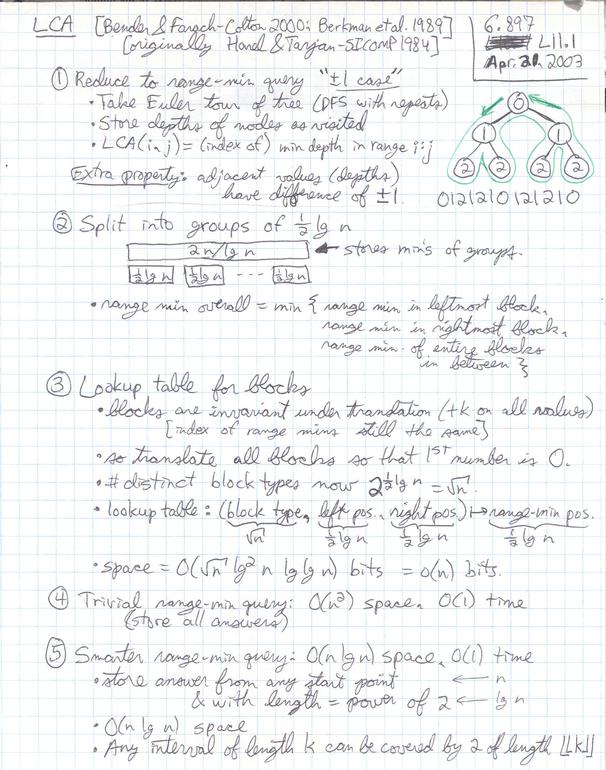 LCA [Bender & Farach-Colton 2000; Berkman et al. 1989]
[originally Harel & Tarjan-SICOMP 1984]
6.897
L11.1
Apr. 21, 2003
① Reduce to range-min query "±1 case"
• Take Euler tour of tree (DFS with repeats)
• Store depths of nodes as visited
• LCA(i,j) = (index of) min depth in range i:j
Extra property: adjacent values (depths)
have difference of ±1.
0
1 1
2 2 2 2
0121210121210
② Split into groups of ½ lg n
2n/lg n ← stores mins of groups.
½ lg n ½ lg n --- ½ lg n
• range min overall = min { range min in leftmost block,
range min in rightmost block,
range min. of entire blocks
in between }
③ Lookup table for blocks
• blocks are invariant under translation (+k on all values)
[index of range mins still the same]
• so translate all blocks so that 1ST number is 0.
• # distinct block types now 2^½ lg n = √n.
• lookup table: (block type, left pos., right pos.) ↦ range-min pos.
√n ½ lg n ½ lg n ½ lg n
• space = O(√n lg² n lg lg n) bits = o(n) bits.
④ Trivial range-min query: O(n²) space, O(1) time
(store all answers)
⑤ Smarter range-min query: O(n lg n) space, O(1) time
• store answer from any start point ← n
& with length = power of 2 ← lg n
• O(n lg n) space
• Any interval of length k can be covered by 2 of length ⌊⌊k⌋⌋